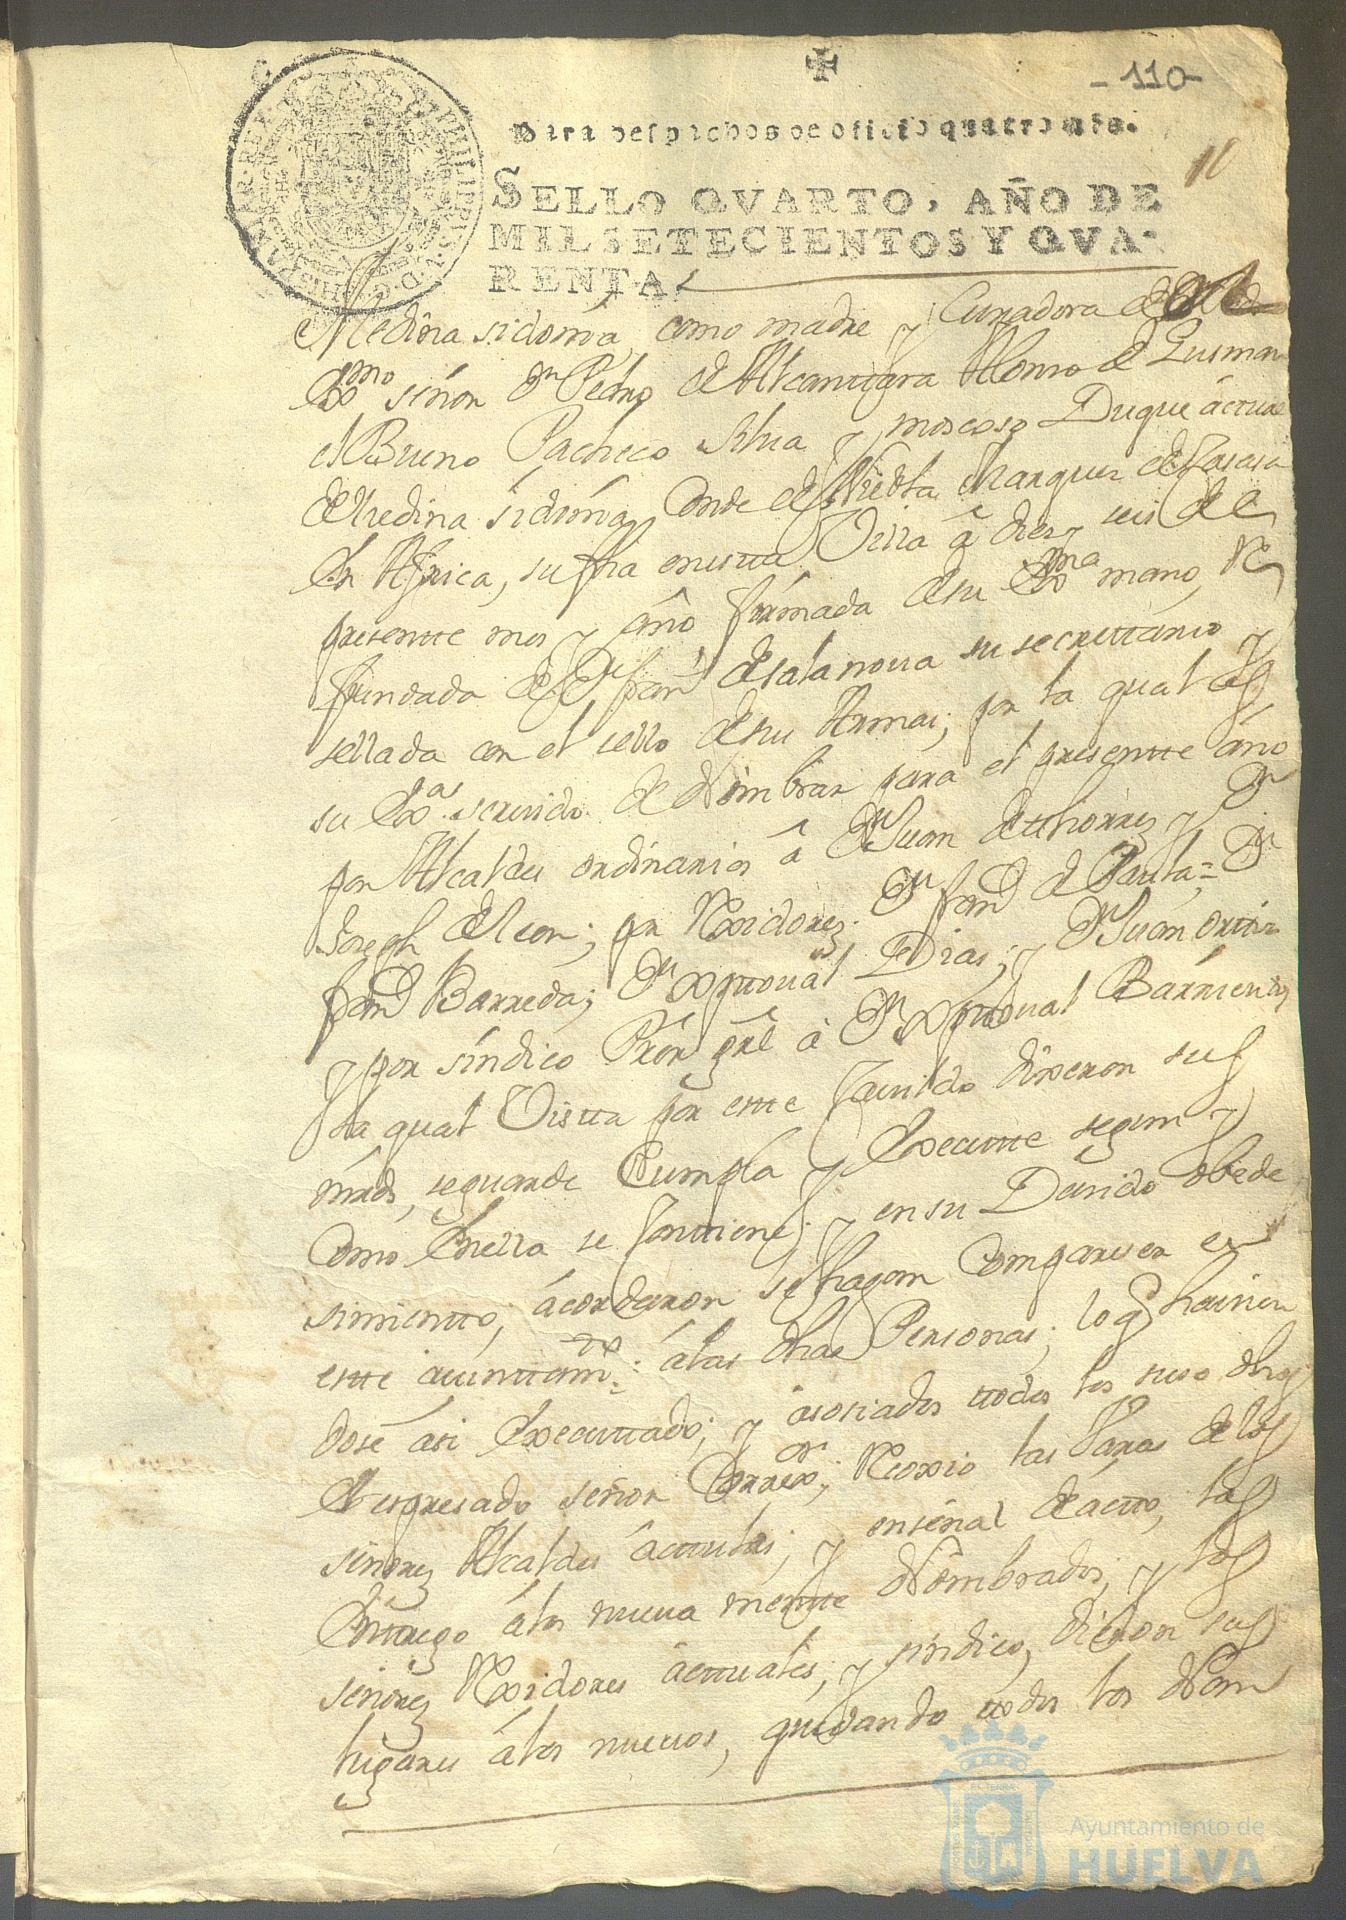 -110-
Para despachos de oficio quatro mrs.
11
SELLO QVARTO, AÑO DE
MIL SETECIENTOS Y QVA-
RENTA.
PHILIPPVS V D.G. HISPANIAR REX
Medina sidonia, como madre y Curadora del
Exmo señor Dn Pedro de Alcantara Alonso de Gusman
el Bueno Pacheco silua y moscoso Duque áctual
de medina sidonia Conde de Niebla Marques de Casasa
en Africa, su fha en esta Villa â dies y seis del
presentte mes y año, firmada de su Exma mano, Re
frendada de Dn fran.co de salanoua su secrettario y
sellada con el sello de sus Armas; por la qual es
su Exa. seruido de Nombrar para el presentte año
por Alcaldes ordinarios â Dn Juan de thorres y Dn
Joseph de leon; por Rexidores Dn fran.co de Pauta = Dn
fran.co Barreda; Dn Xptoual Dias; y Dn Juan ortiz
y por síndico Prôr grâl â Dn Xptoual Barrientos
La qual Vista por este Cauildo dixeron sus
mrds, se guarde Cumpla y Execute segun y
Como En ella se Conttiene; y en su Deuido obede
simiento, ácordaron se hagan Compareser en
este áiuntam.to álas dhas Personas; lo q hauien
dose ási Executtado; y ásosiados ttodos los suso dhos
El espresado señor Correxor; Recoxio las Varas de los
señores Alcaldes áctuales; y en señal de ácto, las
Entrego á los nueua mente Nombrados, y los
señores Rexidores áctuales, y síndico, dieron sus
lugares álos nueuos, quedando ttodos los Nom
Ayuntamiento de
HUELVA